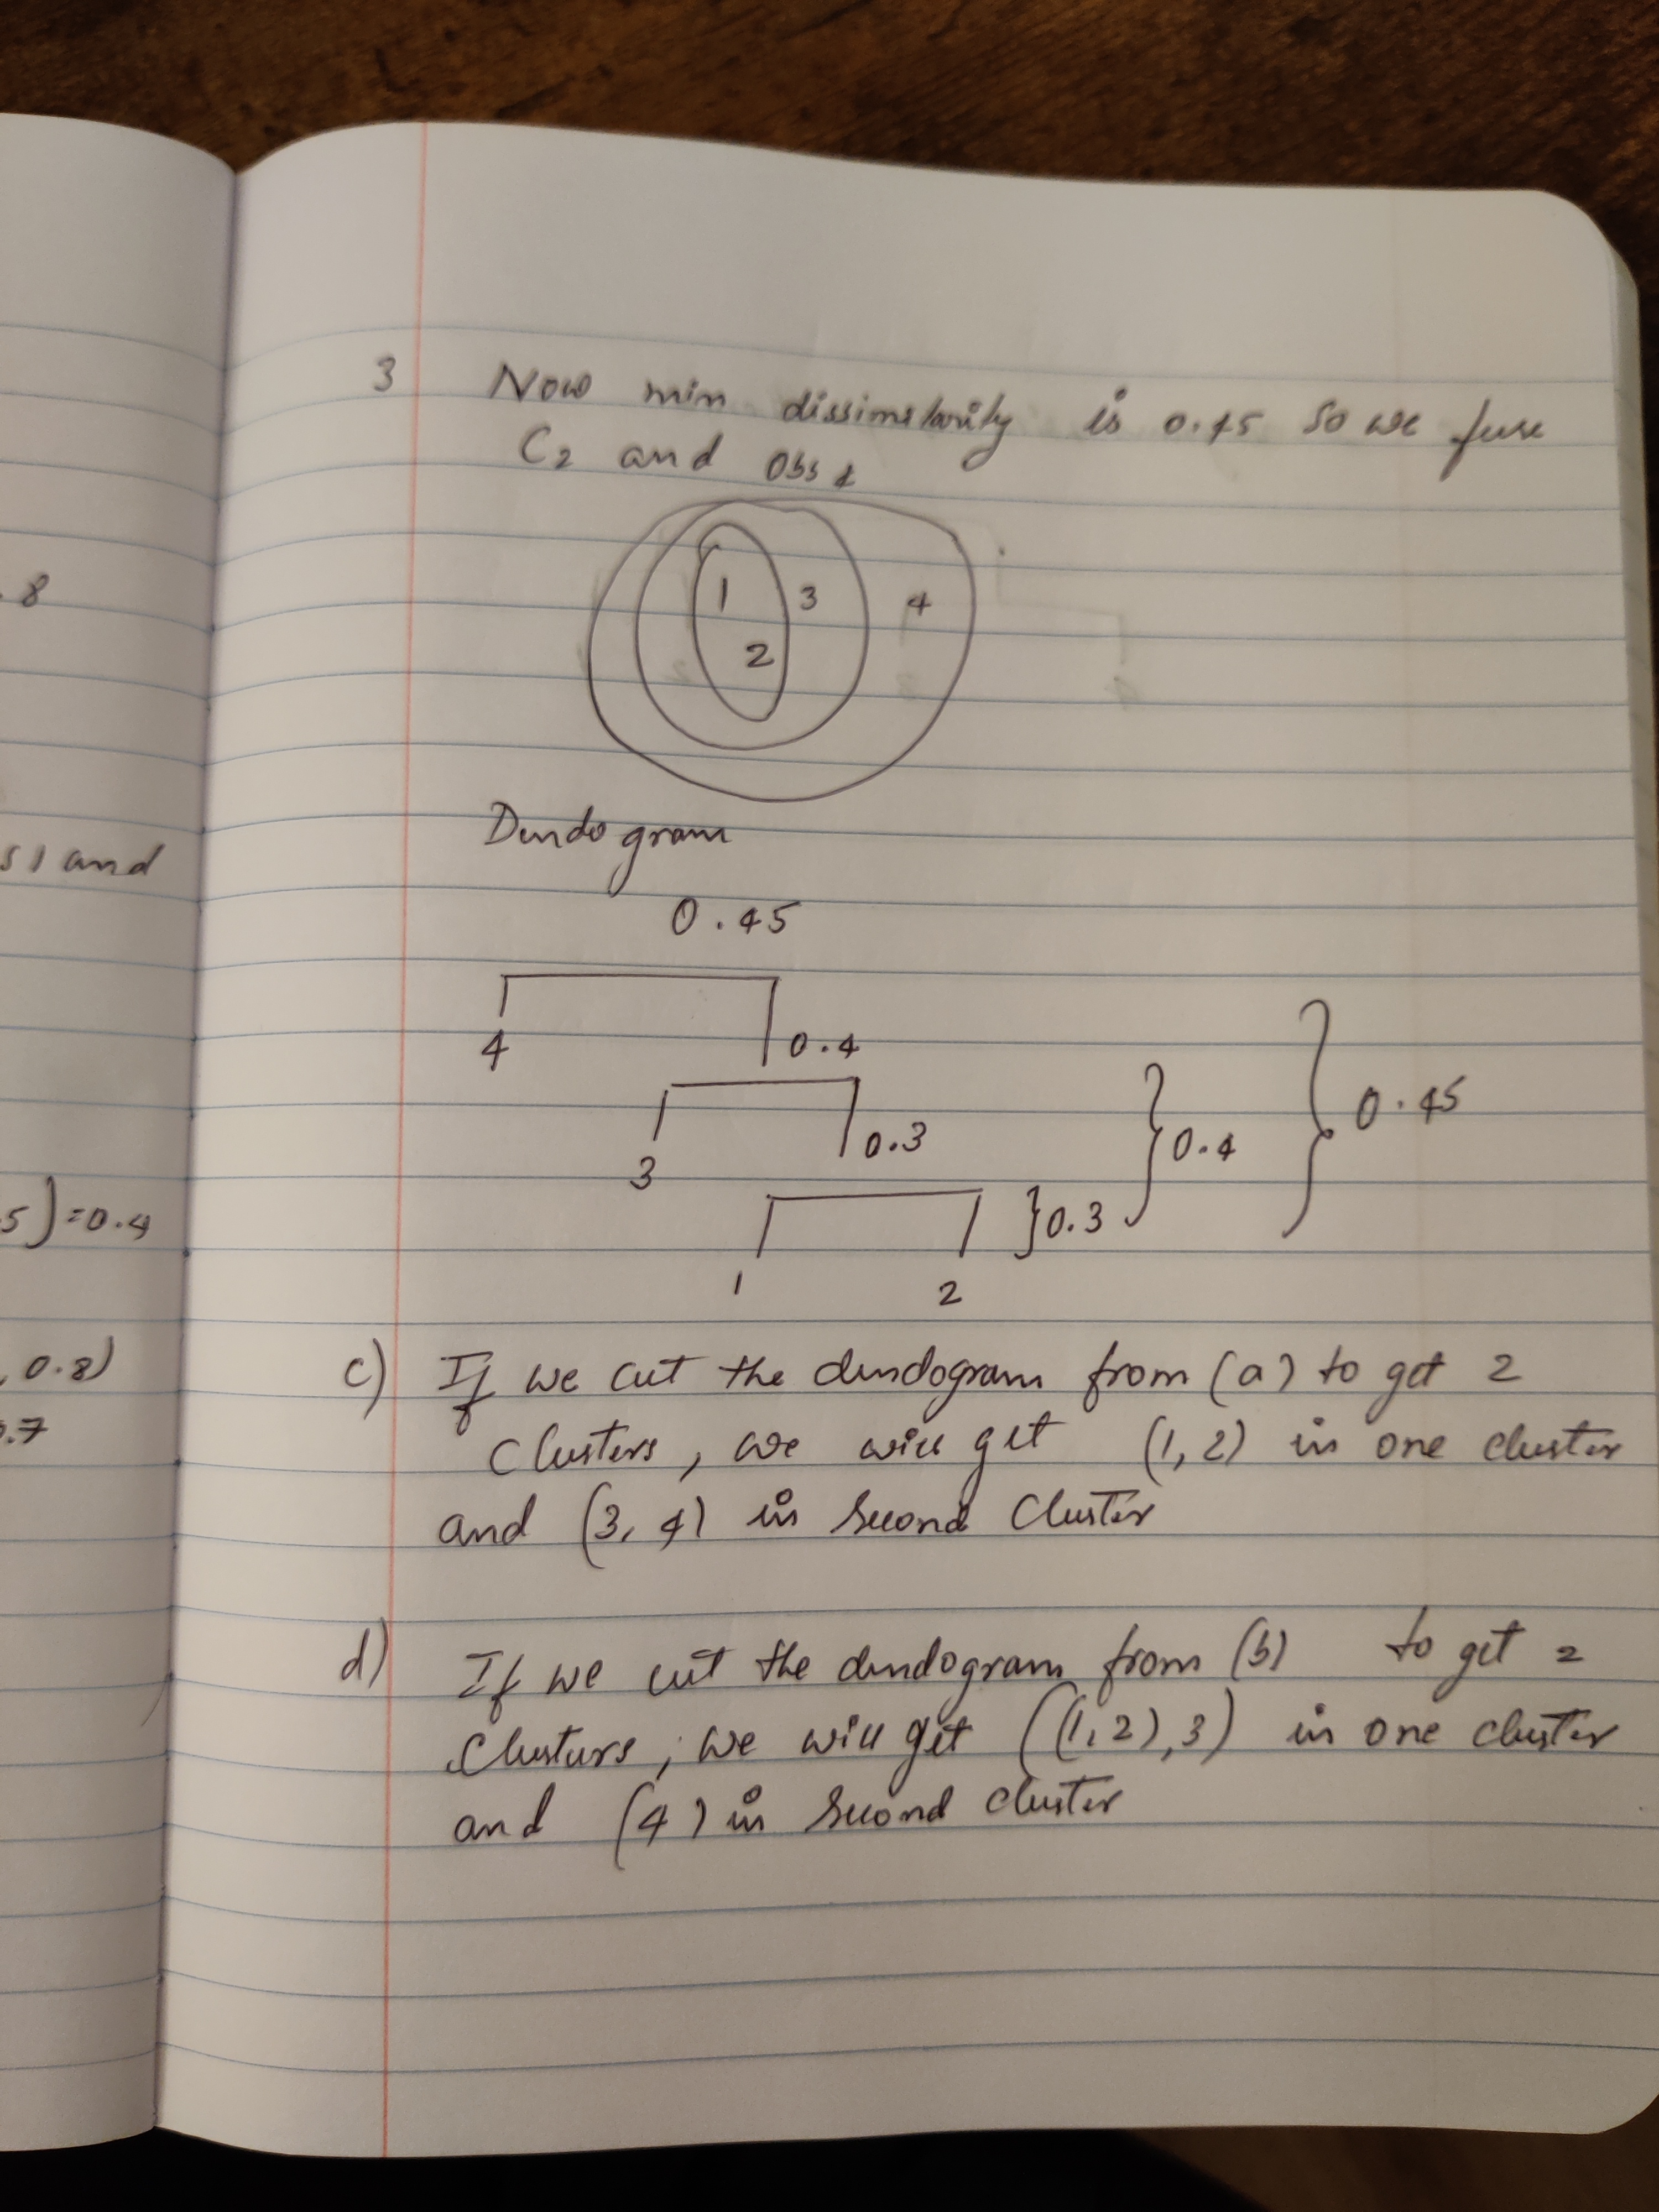 . 8
s 1 and
5) = 0.4
, 0.8)
0.7
3 Now min dissimilarity is 0.45 so we fuse
C2 and Obs 4
1 3 4
2
Dendogram
0.45
4 0.4
3 0.3
1 2 }0.3 }0.4 }0.45
c) If we cut the dendogram from (a) to get 2
clusters, we will get (1, 2) in one cluster
and (3, 4) in second cluster
d) If we cut the dendogram from (b) to get 2
clusters, we will get ((1, 2), 3) in one cluster
and (4) in second cluster